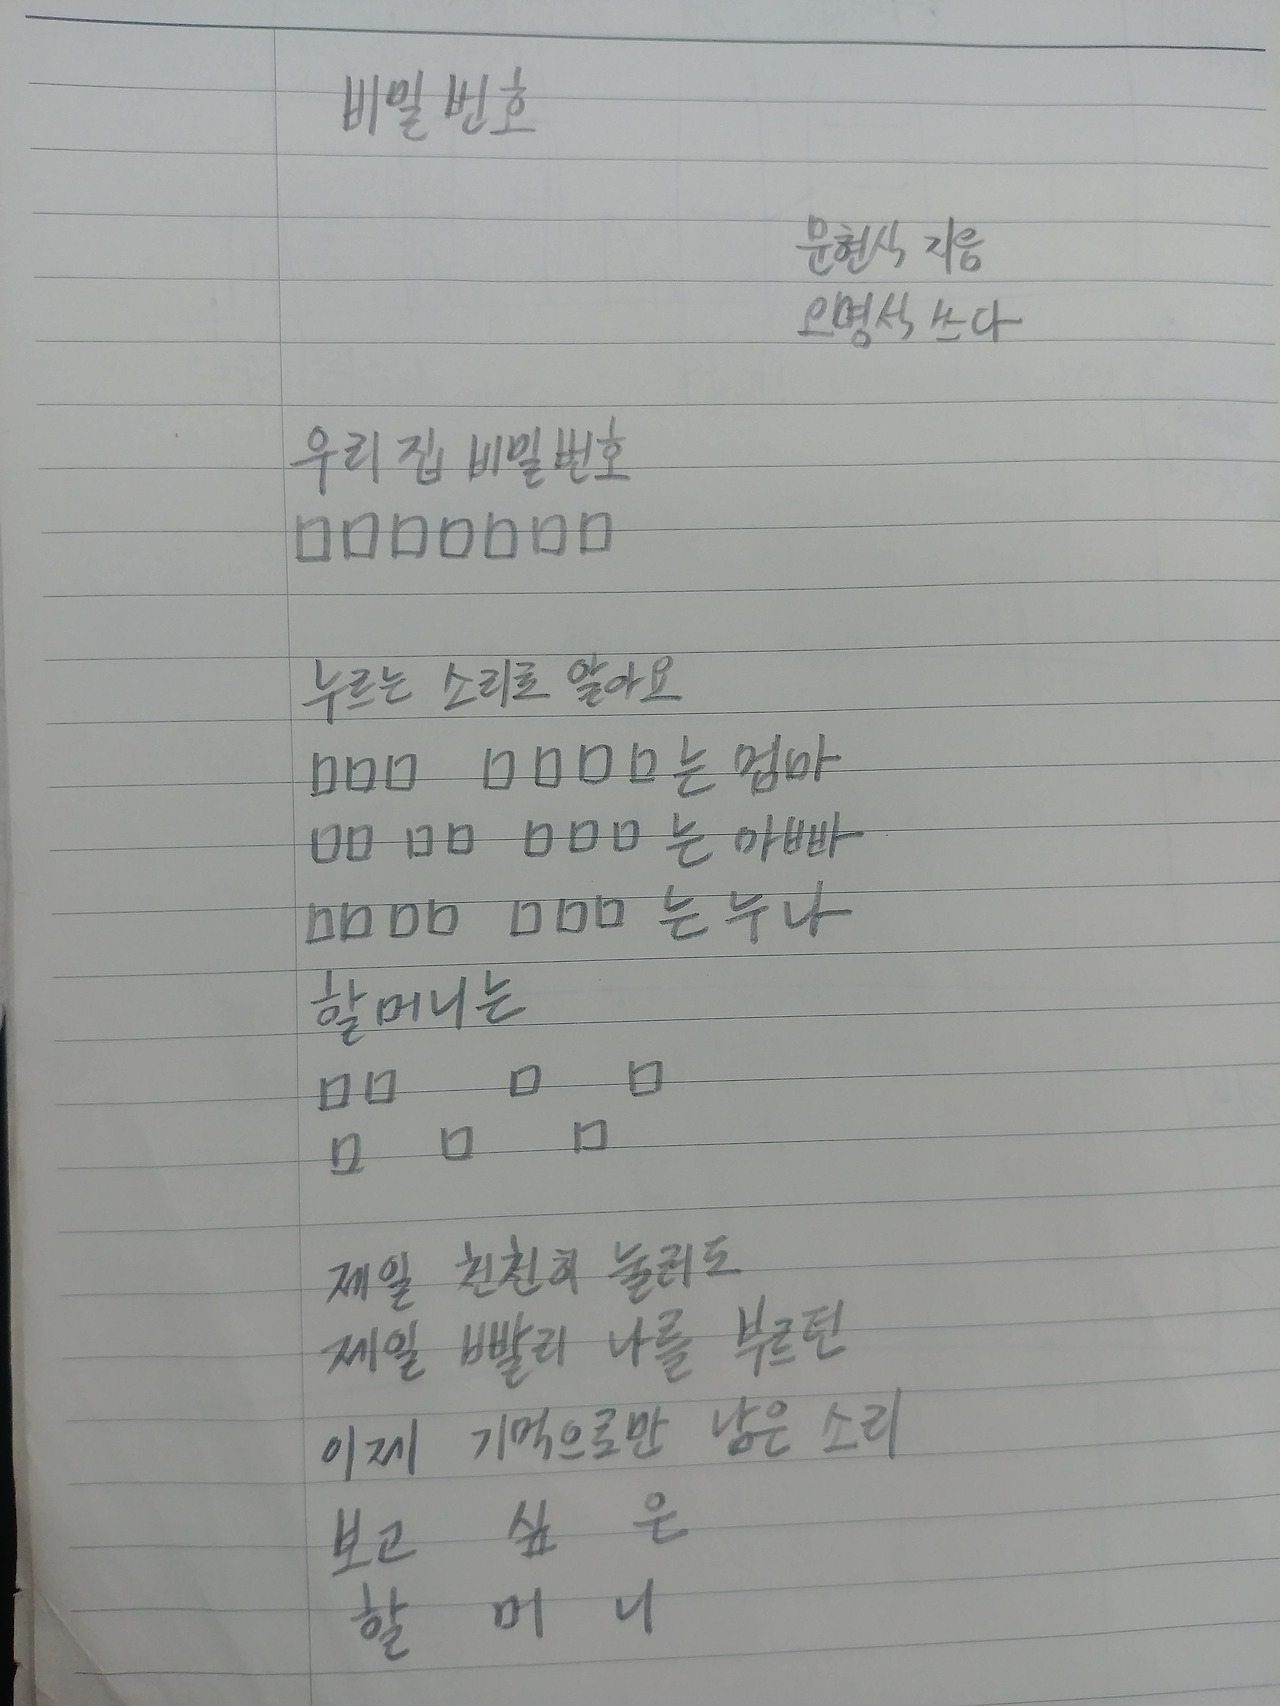 비밀번호
문현식 지음
오명식 쓰다
우리 집 비밀번호
□□□□□□□
누르는 소리로 알아요
□□□ □□□□는 엄마
□□ □□ □□□는 아빠
□□□□ □□□는 누나
할머니는
□□ □ □
□ □ □
제일 천천히 눌러도
제일 빨리 나를 부르던
이제 기억으로만 남은 소리
보고 싶 은
할 머 니